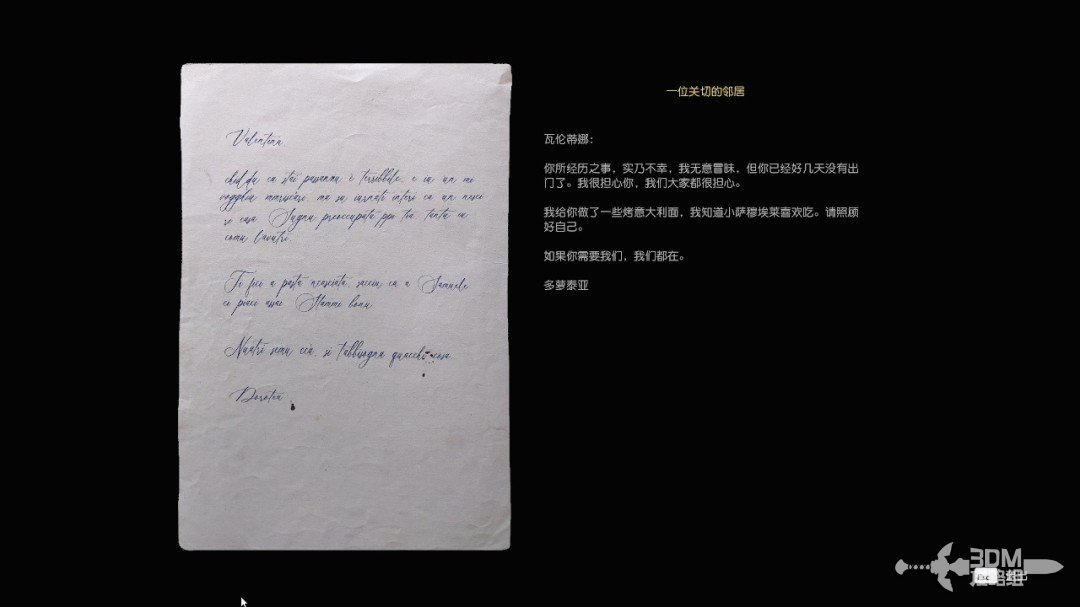 Valentina
chid da ca stai passannu è terribbile, e iu un mi
vogghiu 'ntrusicari ma su iurnati interi ca un nesci
ri casa. Sugnu preoccupata ppi tia, tantu cu
comu l'avutri.
Ti fici a pasta 'ncasciata, sacciu ca a Samuele
ci piaci assai. Stammi bonu
Nuatri semu ccà, si t'abbisogna quacchi cosa
Dorotea
一位关切的邻居
瓦伦蒂娜:
你所经历之事，实乃不幸，我无意冒昧，但你已经好几天没有出
门了。我很担心你，我们大家都很担心。
我给你做了一些烤意大利面，我知道小萨穆埃莱喜欢吃。请照顾
好自己。
如果你需要我们，我们都在。
多萝泰亚
3DM
Esc